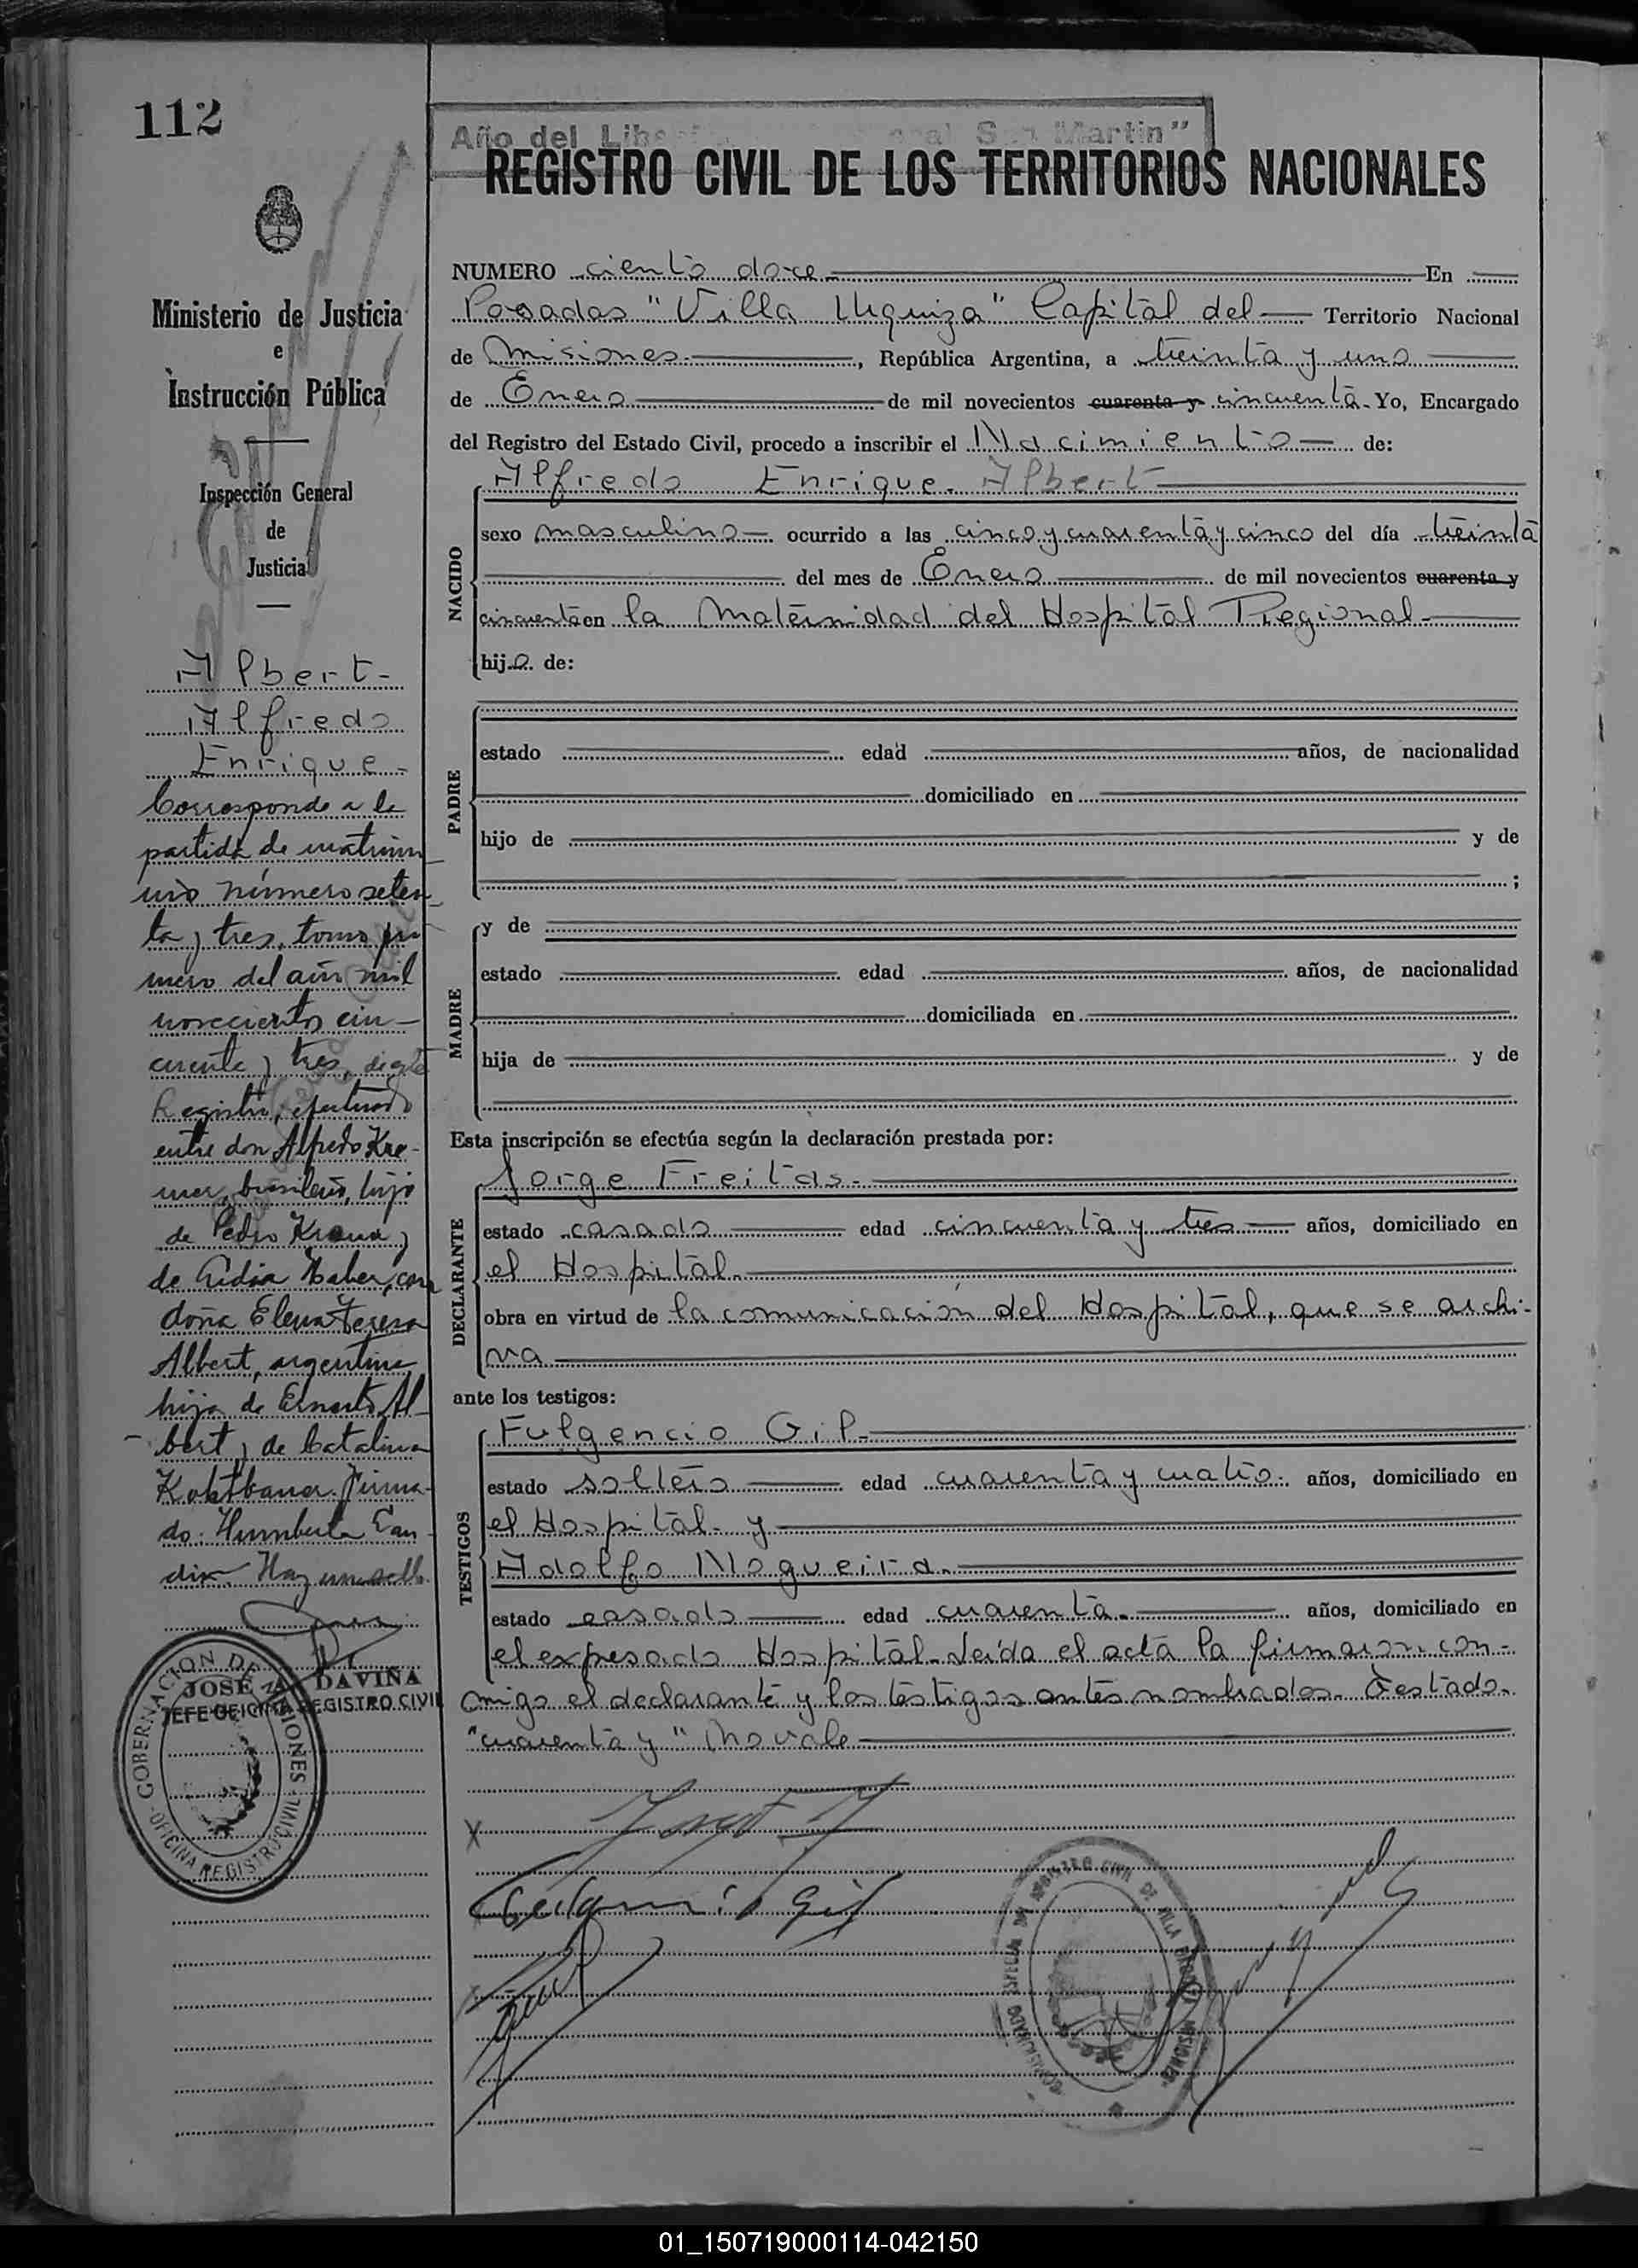 112
Año del Lib San Martin"
REGISTRO CIVIL DE LOS TERRITORIOS NACIONALES
Ministerio de Justicia
e
Instrucción Pública
Inspección General
de
Justicia
Albert-
Alfredo
Enrique-
Corresponde a la
partida de matrimo
nio número seten
ta y tres, tomo pri
mero del año mil
novecientos cin-
cuenta y tres, de este
Registro, efectuado
entre don Alfredo Kre-
mer, brasileño, hijo
de Pedro y
de con
doña Elena Teresa
Albert, argentina
hija de Ernesto Al-
bert y de Catalina
Firma-
do: Humberto
Hay un sello.
JOSE A. DAVIÑA
JEFE OFICINA REGISTRO CIVIL
GOBERNACION DE MISIONES
OFICINA REGISTRO CIVIL
NUMERO ciento doce En
Posadas "Villa Urquiza" Capital del Territorio Nacional
de Misiones, República Argentina, a treinta y uno
de Enero de mil novecientos cuarenta y cincuenta. Yo, Encargado
del Registro del Estado Civil, procedo a inscribir el Nacimiento de:
NACIDO
Alfredo Enrique. Albert
sexo masculino ocurrido a las cinco y cuarenta y cinco del día treinta
del mes de Enero de mil novecientos cuarenta y
cincuenta en la Maternidad del Hospital Regional.
hijo de:
PADRE
estado edad años, de nacionalidad
domiciliado en
hijo de y de
;
MADRE
y de
estado edad años, de nacionalidad
domiciliada en
hija de y de
Esta inscripción se efectúa según la declaración prestada por:
DECLARANTE
Jorge Freitas.
estado casado edad cincuenta y tres años, domiciliado en
el Hospital.
obra en virtud de la comunicación del Hospital, que se archi-
va
ante los testigos:
TESTIGOS
Fulgencio Gil.
estado soltero edad cuarenta y cuatro. años, domiciliado en
el Hospital- y
Adolfo Nogueira.
estado casado edad cuarenta. años, domiciliado en
el expresado Hospital. Leída el acta la firmaron con-
migo el declarante y los testigos antes nombrados. Testado.
"cuarenta y" No vale
X
01_150719000114-042150